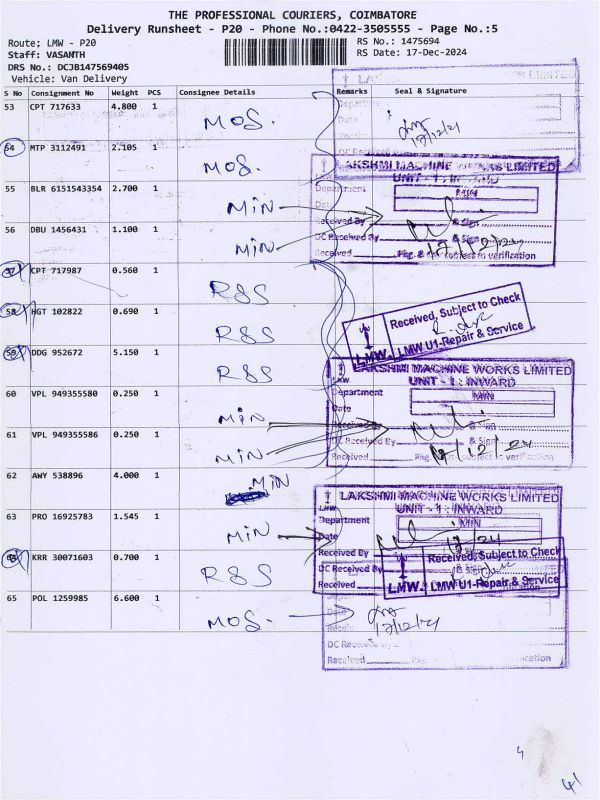 THE PROFESSIONAL COURIERS, COIMBATORE
Delivery Runsheet - P20 - Phone No.:0422-3505555 - Page No.:5
Route; LMW - P20
RS No.: 1475694
Staff: VASANTH
RS Date: 17-Dec-2024
DRS No.: DCJB147569405
Vehicle: Van Delivery
S No Consignment No Weight PCS Consignee Details Remarks Seal & Signature
53 CPT 717633 4.800 1 MOS.
17/12/24
54 MTP 3112491 2.105 1 MOS.
LAKSHMI MACHINE WORKS LIMITED
UNIT - 1 : INWARD
Department MIN
Date
55 BLR 6151543354 2.700 1 MIN
Received By & Sign
56 DBU 1456431 1.100 1 MIN
DC Received By & Sign
17/12/24
Received Pkg. & subject to verification
57 CPT 717987 0.560 1 R&S
58 HGT 102822 0.690 1 R&S
Received, Subject to Check
LMW. LMW U1-Repair & Service
59 DDG 952672 5.150 1 R&S
LAKSHMI MACHINE WORKS LIMITED
UNIT - 1 : INWARD
60 VPL 949355580 0.250 1 MIN
Department MIN
Date
Received By & Sign
61 VPL 949355586 0.250 1 MIN
DC Received By & Sign
17/12/24
Received Pkg. subject to verification
62 AWY 538896 4.000 1 MIN
LAKSHMI MACHINE WORKS LIMITED
UNIT - 1 : INWARD
63 PRO 16925783 1.545 1 MIN
Department MIN
Date
12/24
Received By
64 KRR 30071603 0.700 1 R&S
DC Received By
Received
Received, Subject to Check
LMW. LMW U1-Repair & Service
65 POL 1259985 6.600 1 MOS.
17/12/24
DC Received By
Received
41